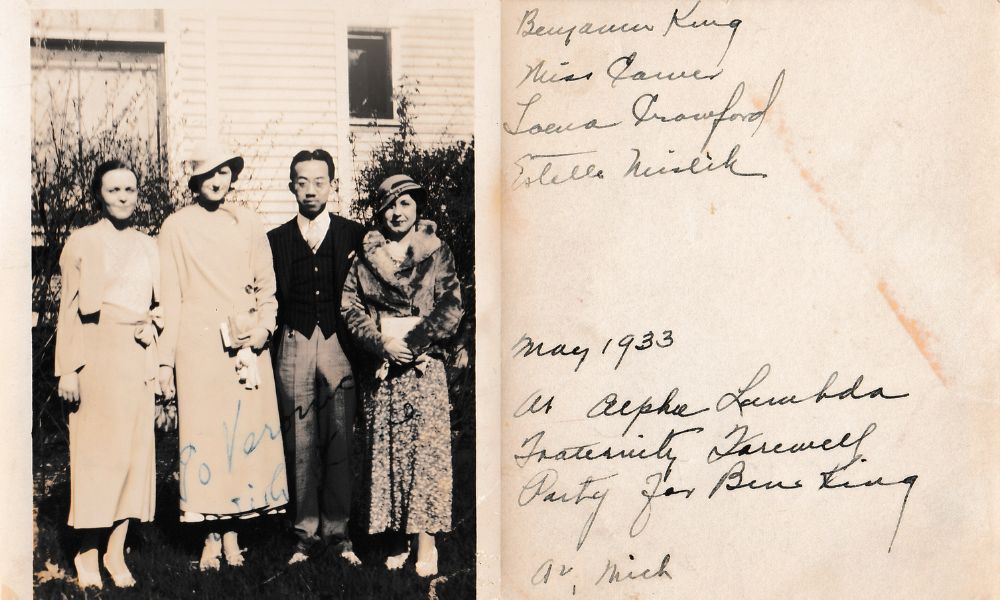 Go Verow
Benjamin King
Miss Carver
Loena Crawford
Estelle Mislik
May 1933
At Alpha Lambda
Fraternity Farewell
Party for Ben King
Mich